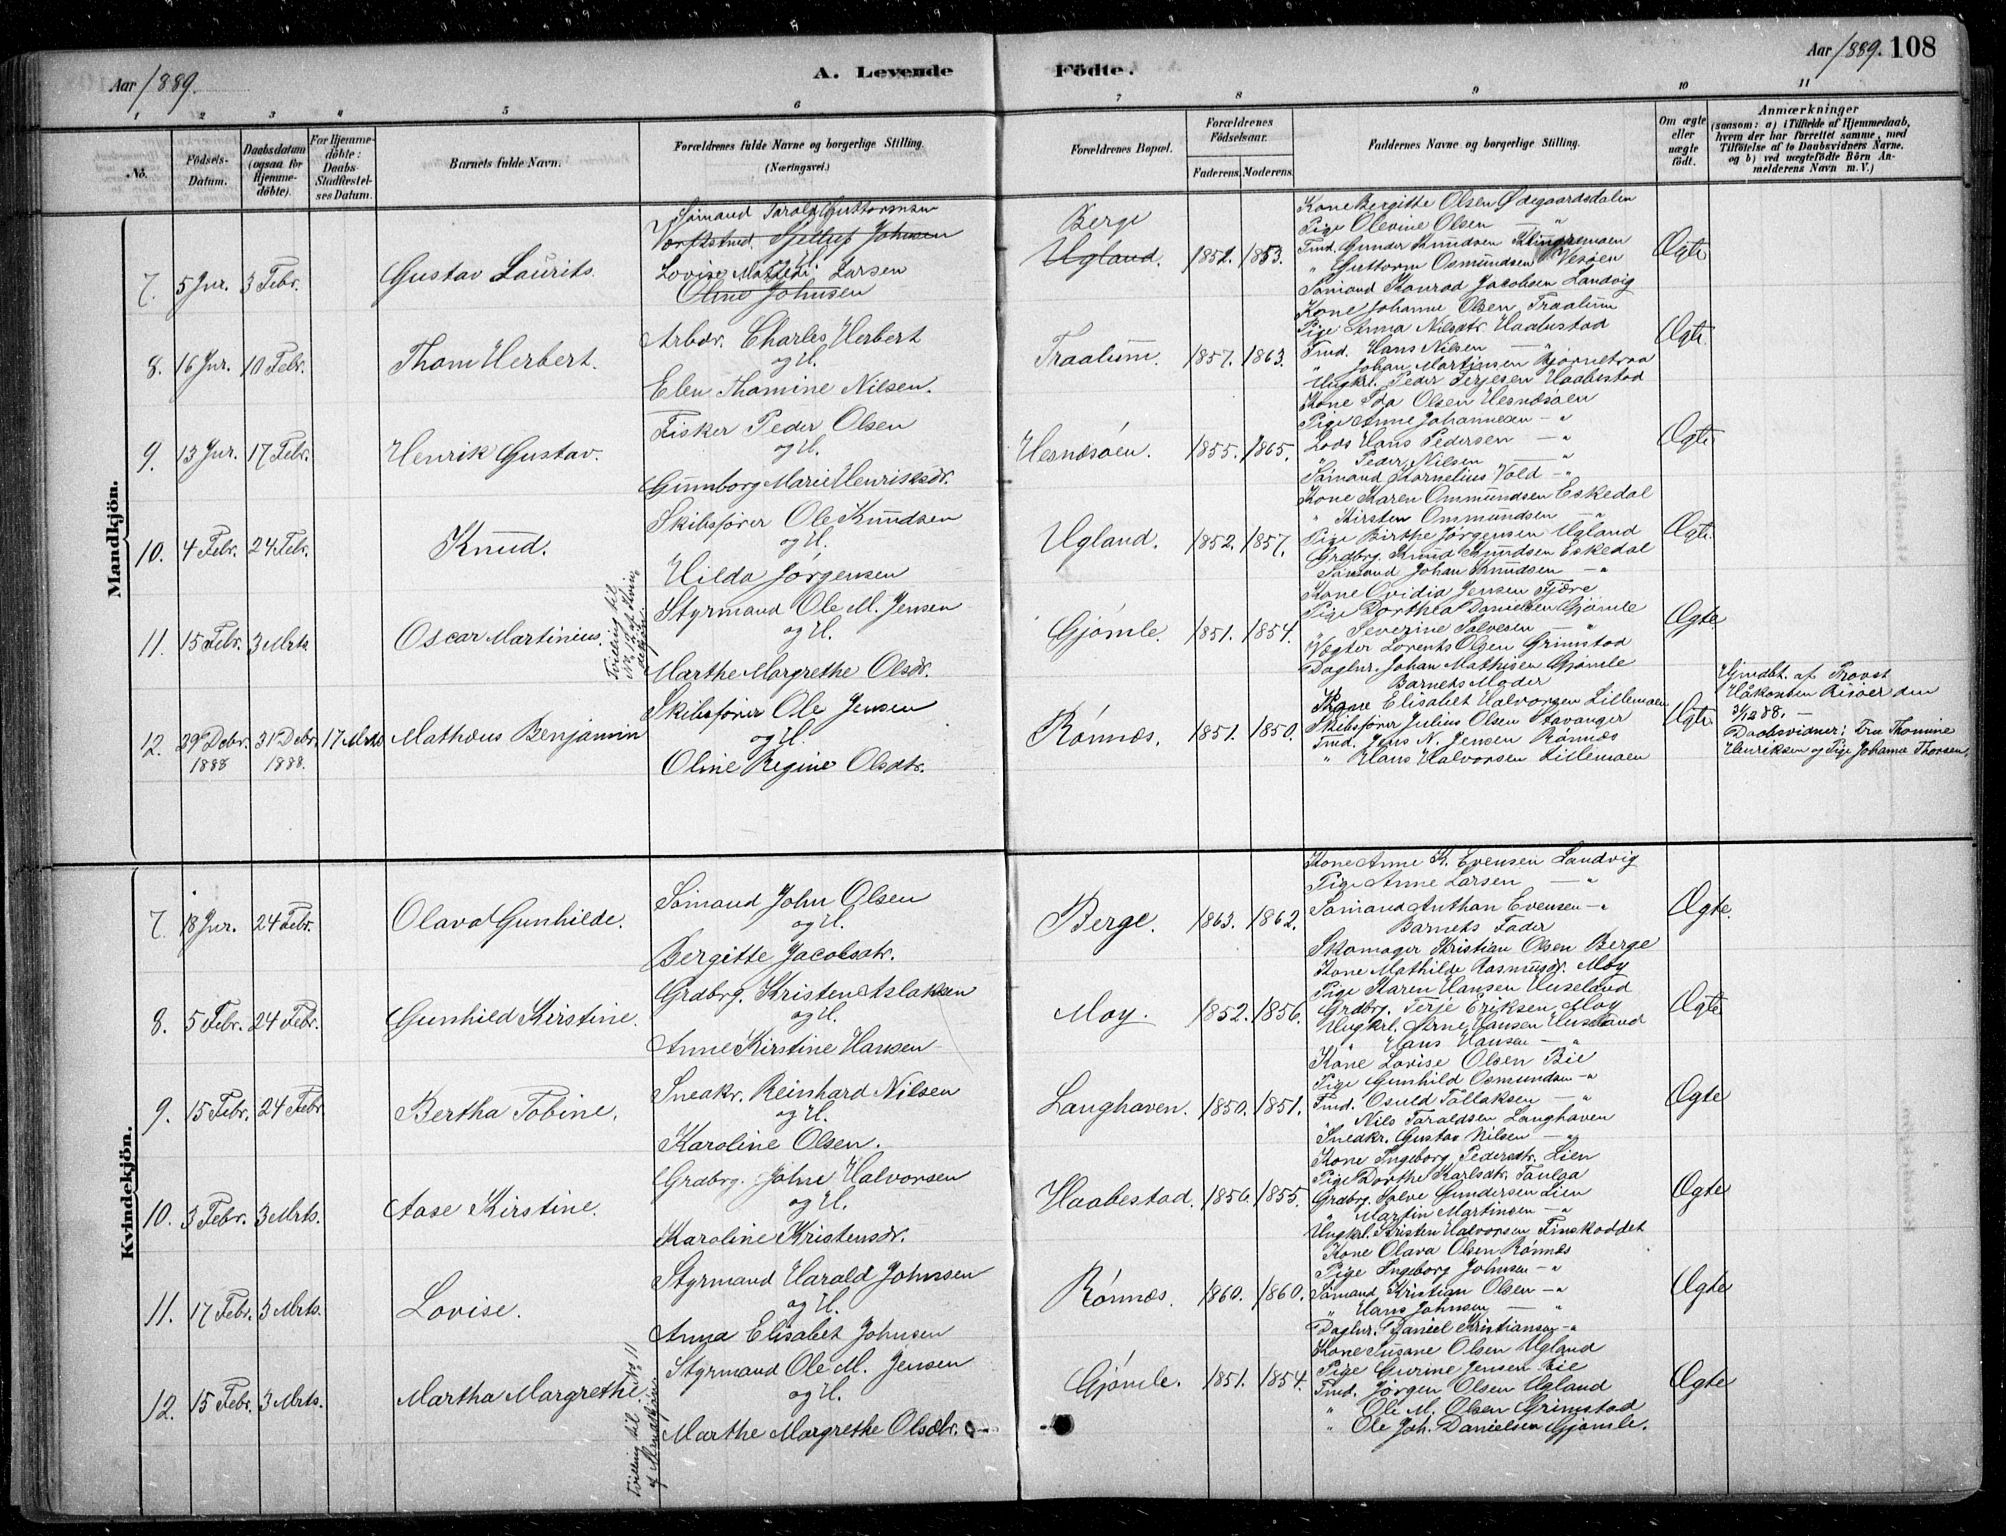 Aar 1889.
A. Levende
Födte.
Aar 1889. 108
1 2 3 4 5 6 7 8 9 10 11
No.
Födsels-
Datum.
Daabsdatum
(ogsaa for
Hjemme-
döbte).
For Hjemme-
döbte:
Daabs-
Stadfæstel-
ses Datum.
Barnets fulde Navn.
Forældrenes fulde Navne og borgerlige Stilling.
(Næringsvei.)
Forældrenes Bopæl.
Forældrenes
Födselsaar.
Faderens. Moderens.
Faddernes Navne og borgerlige Stilling.
Om ægte
eller
uægte
födt.
Anmærkninger
(saasom: a) i Tilfælde af Hjemmedaab,
hvem der har forrettet samme, med
Tilföielse af to Daabsvidners Navne.
og b) ved uægtefödte Börn An-
melderens Navn m. V.)
Mandkjön.
7. 5 Jnr. 3 Febr. Gustav Laurits.
Sömand Tarald Guttormsen
og H.
Lovise Mathedi Larsen
Oline Johnsen
Berge
Ugland. 1852. 1853.
Kone Bergitte Olsen Ødegaardsdalen
Pige Olevine Olsen — "
Tmd. Gunder Knudsen
" Guttorm Osmundsen Vesøen
Sømand Konrad Jacobsen Landvig
Ægte
8. 16 Jnr. 10 Febr. Thom Herbert.
Arbdr. Charles Herbert
og H.
Elen Thomine Nilsen.
Traalum. 1857. 1863.
Kone Johanne Olsen Traalum
Pige Anna Nilsdtr. Haabestad
Tmd. Hans Nilsen — "
" Johan Martinsen
Ungkrl. Peder Terjesen Haabestad
Ægte
9. 13 Jnr. 17 Febr. Henrik Gustav.
Fisker Peder Olsen
og H.
Gunnborg Marie Henriksdr.
Hesnæsøen. 1855. 1865.
Kone Ida Olsen Hesnæsøen
Pige Anne Johannesen — "
Lods Hans Pedersen — "
" Peder Nilsen — "
Sømand Kornelius Vold — "
Ægte
10. 4 Febr. 24 Febr. Knud.
Skibsfører Ole Knudsen
og H.
Hilda Jørgensen
Ugland. 1852. 1857.
Kone Karen Ommundsen Eskedal
" Kirsten Ommundsen — "
Pige Birthe Jørgensen Ugland
Grdbrg. Knud Knudsen Eskedal
Sømand Johan Knudsen — "
Ægte
11. 15 Febr. 3 Mrts Oscar Martinius.
Tvilling til
No. 12 af Kvin-
dekjøn.
Styrmand Ole M. Jensen
og H.
Marthe Margrethe Olsdr.
Gjømle. 1851. 1854.
Kone Ovidia Jensen Fjære
Pige Dorthea Danielsen Gjømle
" Severine Salvesen — "
Vægter Lorents Olsen Grimstad
Daglnr. Johan Mathisen Gjømle
Ægte
12. 29 Debr. 1888 31 Debr. 1888. 17 Mrts Mathæus Benjamin
Skibsfører Ole Jensen
og H.
Oline Regine Olsdtr.
Rønnæs. 1851. 1850.
Barnets Moder
Kone Elisabet Halvorsen Lillemoen
Skibsfører Julius Olsen Stavanger
Tmd. Jens N. Jensen Rønnæs
" Hans Halvorsen Lillemoen
Ægte
Hjmdbt. af Provst
Håkonsen Risøer den
31/12 88. —
Daabsvidner: Fru Thomine
Henriksen og Pige Johanne Thorsen.
Kvindekjön.
7. 18 Jnr. 24 Febr. Olava Gunhilde.
Sømand John Olsen
og H.
Bergitte Jacobsdtr.
Berge. 1863. 1862.
Kone Anne K. Evensen Landvig
Pige Anne Larsen — "
Sømand Anthon Evensen — "
Barnets Fader
Skomager Kristian Olsen Berge
Ægte
8. 5 Febr. 24 Febr. Gunhild Kirstine.
Grdbrg. Kristen Aslaksen
og H.
Anne Kirstine Hansen
Moy. 1852. 1856.
Kone Mathilde Rasmusdr. Moy
Pige Karen Hansen Huseland
Grdbrg. Terje Eriksen Moy
Ungkrl. Arne Hansen Huseland
" Hans Hansen — "
Ægte
9. 15 Febr. 24 Febr. Bertha Tobine.
Snedkr. Reinhard Nilsen
og H.
Karoline Olsen.
Langhaven. 1850. 1851.
Kone Lovise Olsen Bie
Pige Gunhild Osmundsen — "
Tmd. Osuld Tallaksen — "
" Nils Taraldsen Langhaven
Snedkr. Gustav Nilsen — "
Ægte
10. 3 Febr. 3 Mrts. Aase Kirstine.
Grdbrg. John Halvorsen
og H.
Karoline Kristensdr.
Haabestad. 1856. 1855.
Kone Ingeborg Pedersdtr. Lien
Pige Dorthe Karlsdtr. Taulaa
Grdbrg. Salve Gundersen Lien
" Martin Martinsen — "
Ungkrl. Kristen Halvorsen Finskoddet
Ægte
11. 17 Febr. 3 Mrts. Lovise.
Styrmand Harald Johnsen
og H.
Anna Elisabet Johnsen
Rønnæs. 1860. 1860.
Kone Olava Olsen Rønnæs
Pige Ingeborg Johnsen — "
Sømand Kristian Olsen — "
" Hans Johnsen — "
Daglnr. Daniel Kristiansen — "
Ægte
12. 15 Febr. 3 Mrts. Martha Margrethe
Tvilling til No. 11
af Mandkjøn
Styrmand Ole M. Jensen
og H.
Marthe Margrethe Olsdtr.
Gjømle. 1851. 1854.
Kone Susane Olsen Ugland
Pige Gurine Jensen Bie
Tmd. Jørgen Olsen Ugland
" Ole M. Olsen Grimstad
" Ole Joh. Danielsen Gjømle.
Ægte